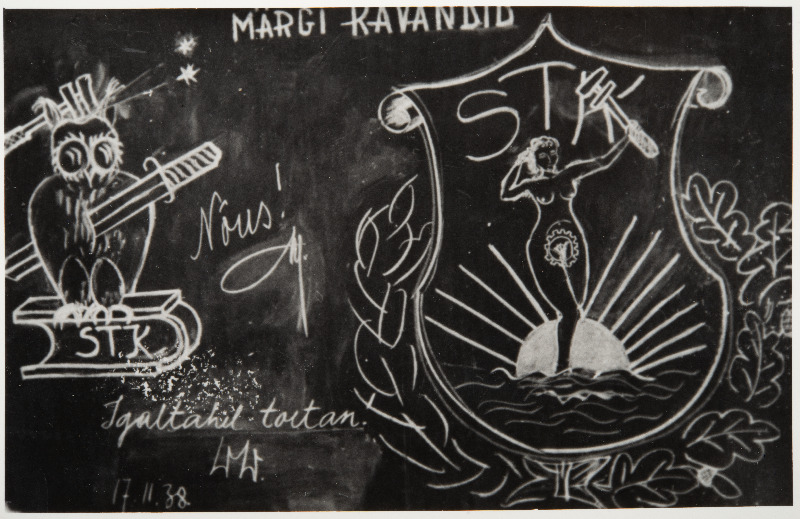 MÄRGI KAVANDID
STK
Nõus!
STK
Igaltahil toetan.
17.11.38